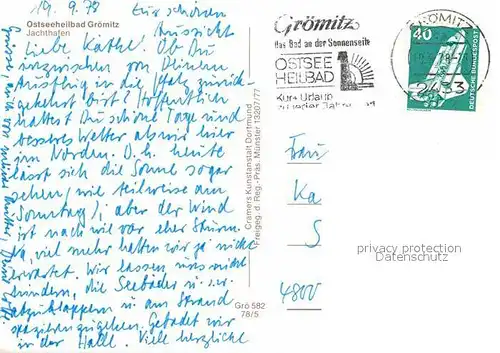 19.9.78 Zur schönen
Aussicht
Ostseeheilbad Grömitz
Jachthafen
Liebe Käthe! Ob Du
inzwischen von Deinem
Ausflug in die Pfalz zurück-
gekehrt bist? Hoffentlich
hattest Du schöne Tage und
besseres Wetter als wir hier
im Norden. D.h. heute
lässt sich die Sonne sogar
sehen (wie teilweise am
Sonntag), aber der Wind
ist nach wie vor eher Sturm.
Na, viel mehr hatten wir ja nicht
erwartet. Wir lassen uns nicht
hindern, die Seebäder u.
abzuklappern u. am Strand
spazierenzugehen. Gebadet wird
in der Halle. Viele herzliche
Grüsse, auch von meiner Mutter, Deine
Cramers Kunstanstalt Dortmund
Freigeg. d. Reg.-Präs. Münster 13207/77
Grö 582
78/5
Grömitz
das Bad an der Sonnenseite
OSTSEE
HEILBAD
Kur+Urlaub
GRÖMITZ
2433
40
DEUTSCHE BUNDESPOST
Frau
Ka
S
4800
privacy protection
Datenschutz